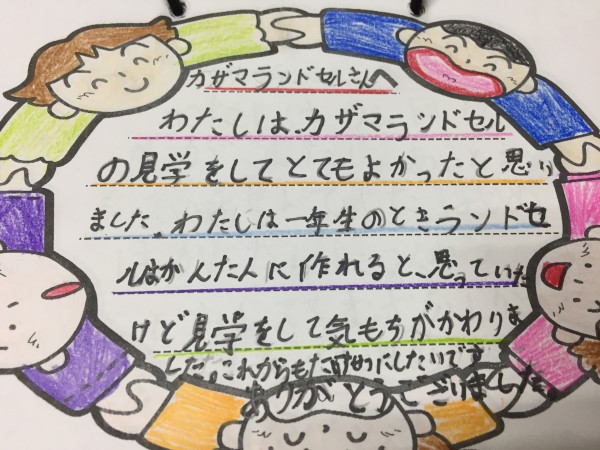 カザマランドセルさんへ
わたしは、カザマランドセル
の見学をしてとてもよかったと思い
ました。わたしは一年生のときランドセ
ルはかんた人に作れると、思っていた
けど見学をして気もちがかわりま
した。これからもたいせつにしたいです
ありがとうございました。